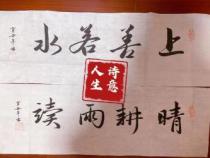 上善若水
晴耕雨读
诗意
人生